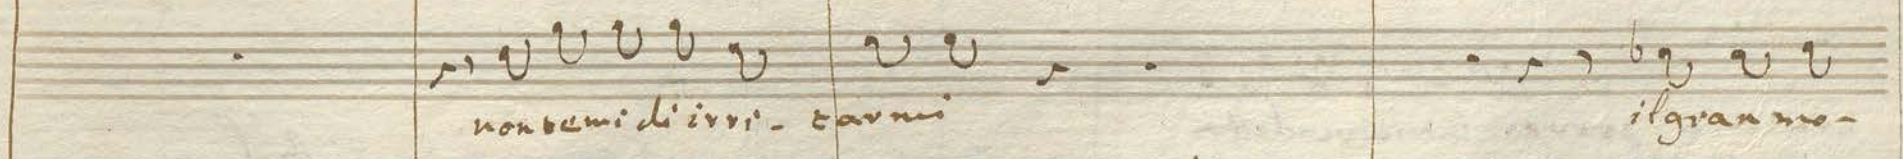 non temi di irri - tarmi il gran mo -